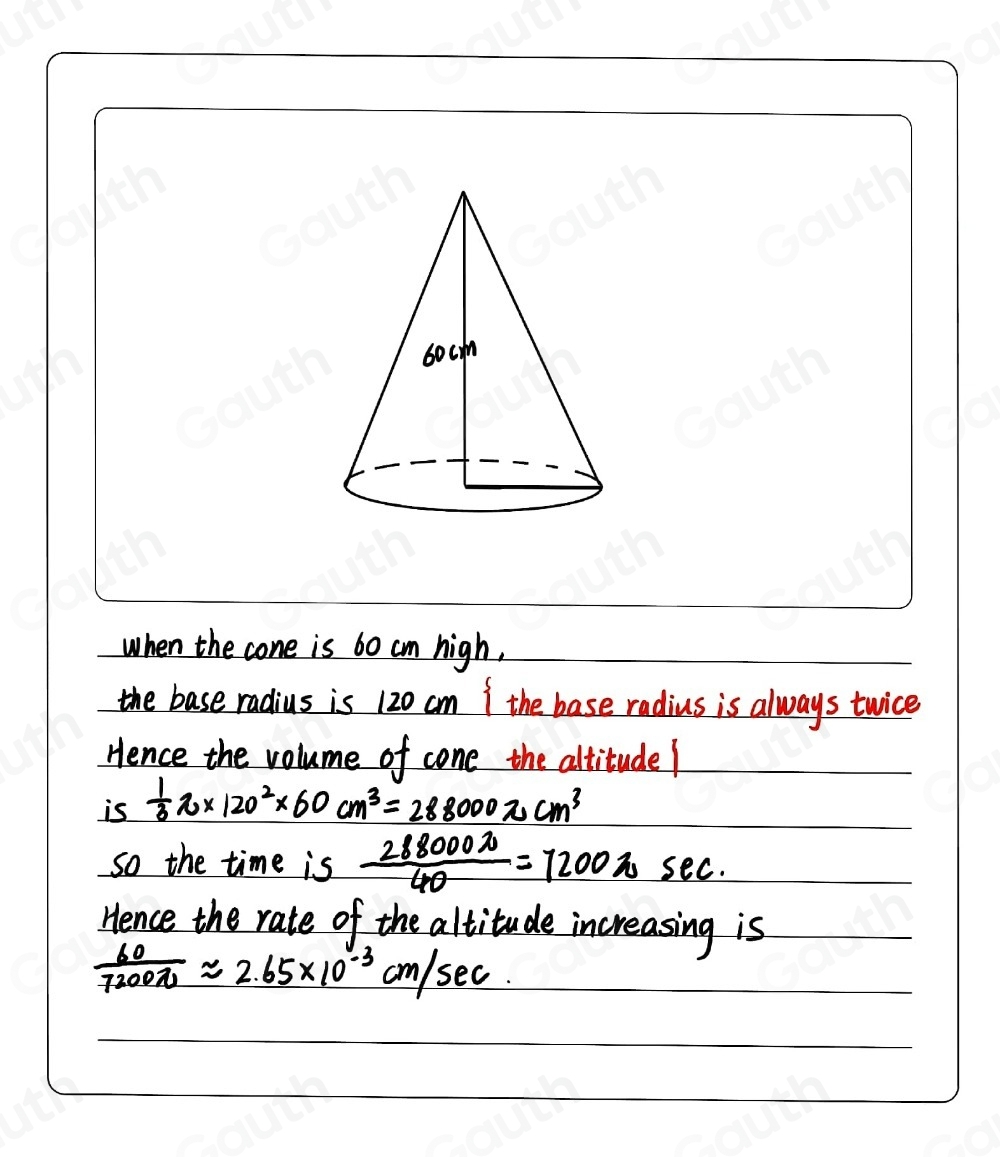 60cm
when the cone is 60 cm high,
the base radius is 120 cm { the base radius is always twice
Hence the volume of cone the altitude }
is 1/3 π × 120² × 60 cm³ = 288000 π cm³
so the time is 288000π/40 = 7200 π sec.
Hence the rate of the altitude increasing is
60/7200π ≈ 2.65×10⁻³ cm/sec.
Gauth